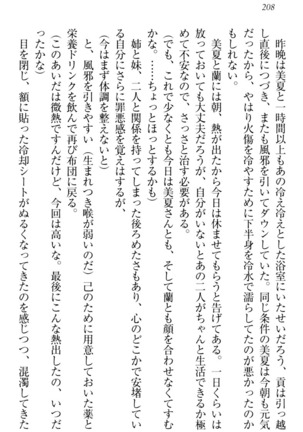 208
昨晩は美夏と一時間以上もあの冷え冷えとした浴室にいたせいだろう、貢は引っ越
し直後につづき、またも風邪を引いてダウンしていた。同じ条件の美夏は今朝も元気
だったから、やはり火傷を冷やすために下半身を冷水で濡らしてたのが悪かったのか
もしれない。
美夏と蘭には朝、熱が出たから今日は休ませてもらうと告げてある。一日くらいは
放っておいても大丈夫だろうが、自分がいないとあの二人がちゃんと生活できるか極
めて不安なので、さっさと治す必要がある。
(でも、これで少なくとも今日は美夏さんとも、そして蘭とも顔を合わせなくてす
むかな。……ちょっとほっとするかも)
姉と妹、二人と関係を持ってしまった後ろめたさもあり、心のどこかで安堵してい
る自分にさらに罪悪感を覚えはするが、
(今はまず体調を整えないと)
と、風邪を引きやすい(生まれつき喉が弱いのだ)己のために用意しておいた薬と
栄養ドリンクを飲んで再び布団に戻る。
(このあいだは微熱ですんだけど、今回は高いな。最後にこんな熱出したの、いつだ
ったかな)
目を閉じ、額に貼った冷却シートがぬるくなってきたのを感じつつ、混濁してきた